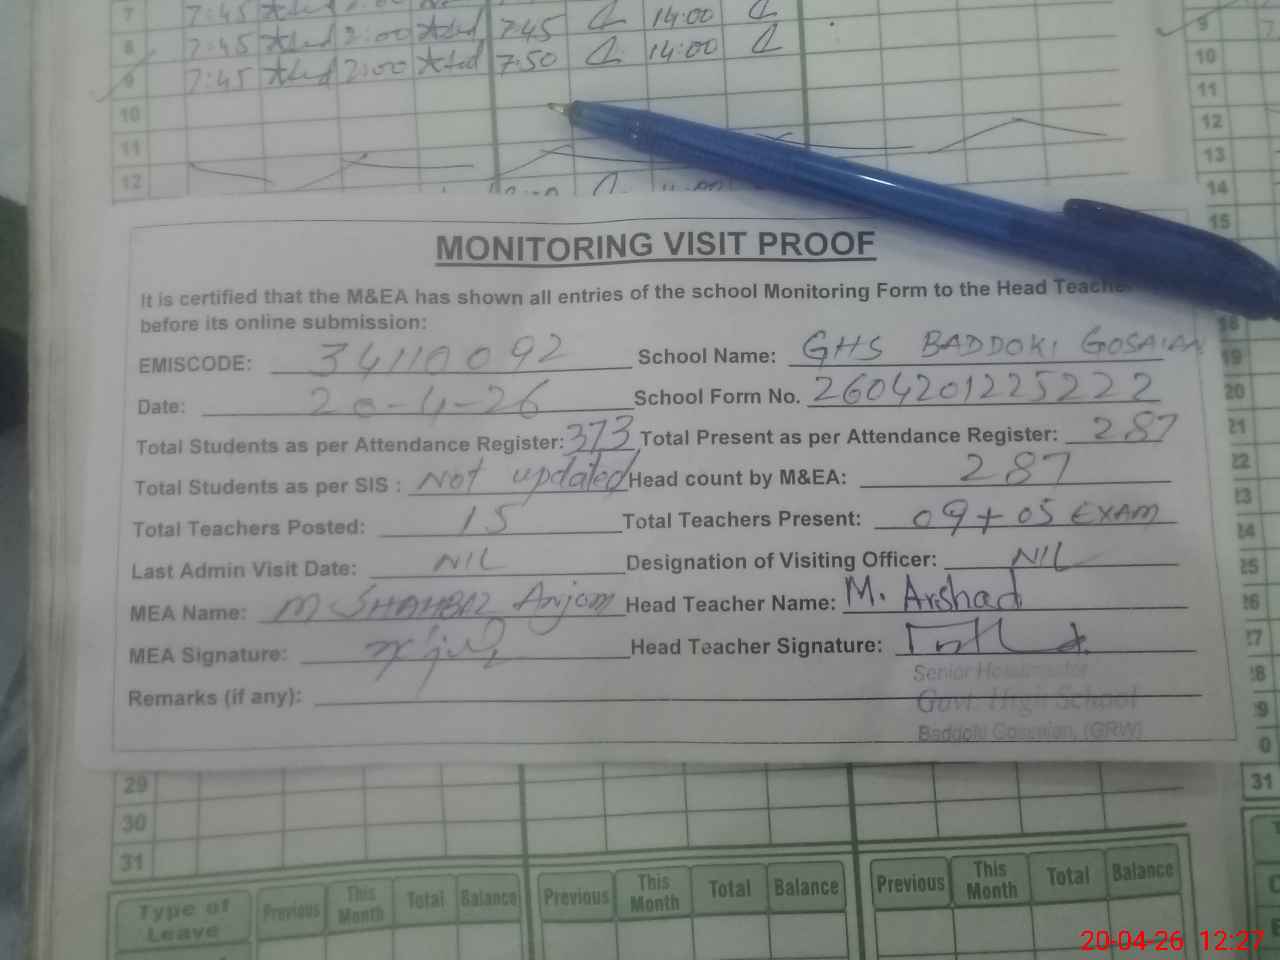 7 7:45
8 7:45 2:00 7:45 14:00 9
9 7:45 2:00 7:50 14:00 10
10 11
11 12
12 13
14
15
MONITORING VISIT PROOF
It is certified that the M&EA has shown all entries of the school Monitoring Form to the Head Teacher
before its online submission:
EMISCODE: 34110092 School Name: GHS BADDOKI GOSAIAN
Date: 20-4-26 School Form No. 2604201225222
Total Students as per Attendance Register: 373 Total Present as per Attendance Register: 287
Total Students as per SIS : Not updated Head count by M&EA: 287
Total Teachers Posted: 15 Total Teachers Present: 09+05 EXAM
Last Admin Visit Date: NIL Designation of Visiting Officer: NIL
MEA Name: M SHAHBAZ Anjom Head Teacher Name: M. Arshad
MEA Signature: Head Teacher Signature:
Senior Headmaster
Remarks (if any): Govt. High School
Baddoki Gosaian, (GRW)
18
19
20
21
22
23
24
25
26
27
28
29
29 31
30
31
Type of Leave Previous This Month Total Balance Previous This Month Total Balance Previous This Month Total Balance
20-04-26 12:27